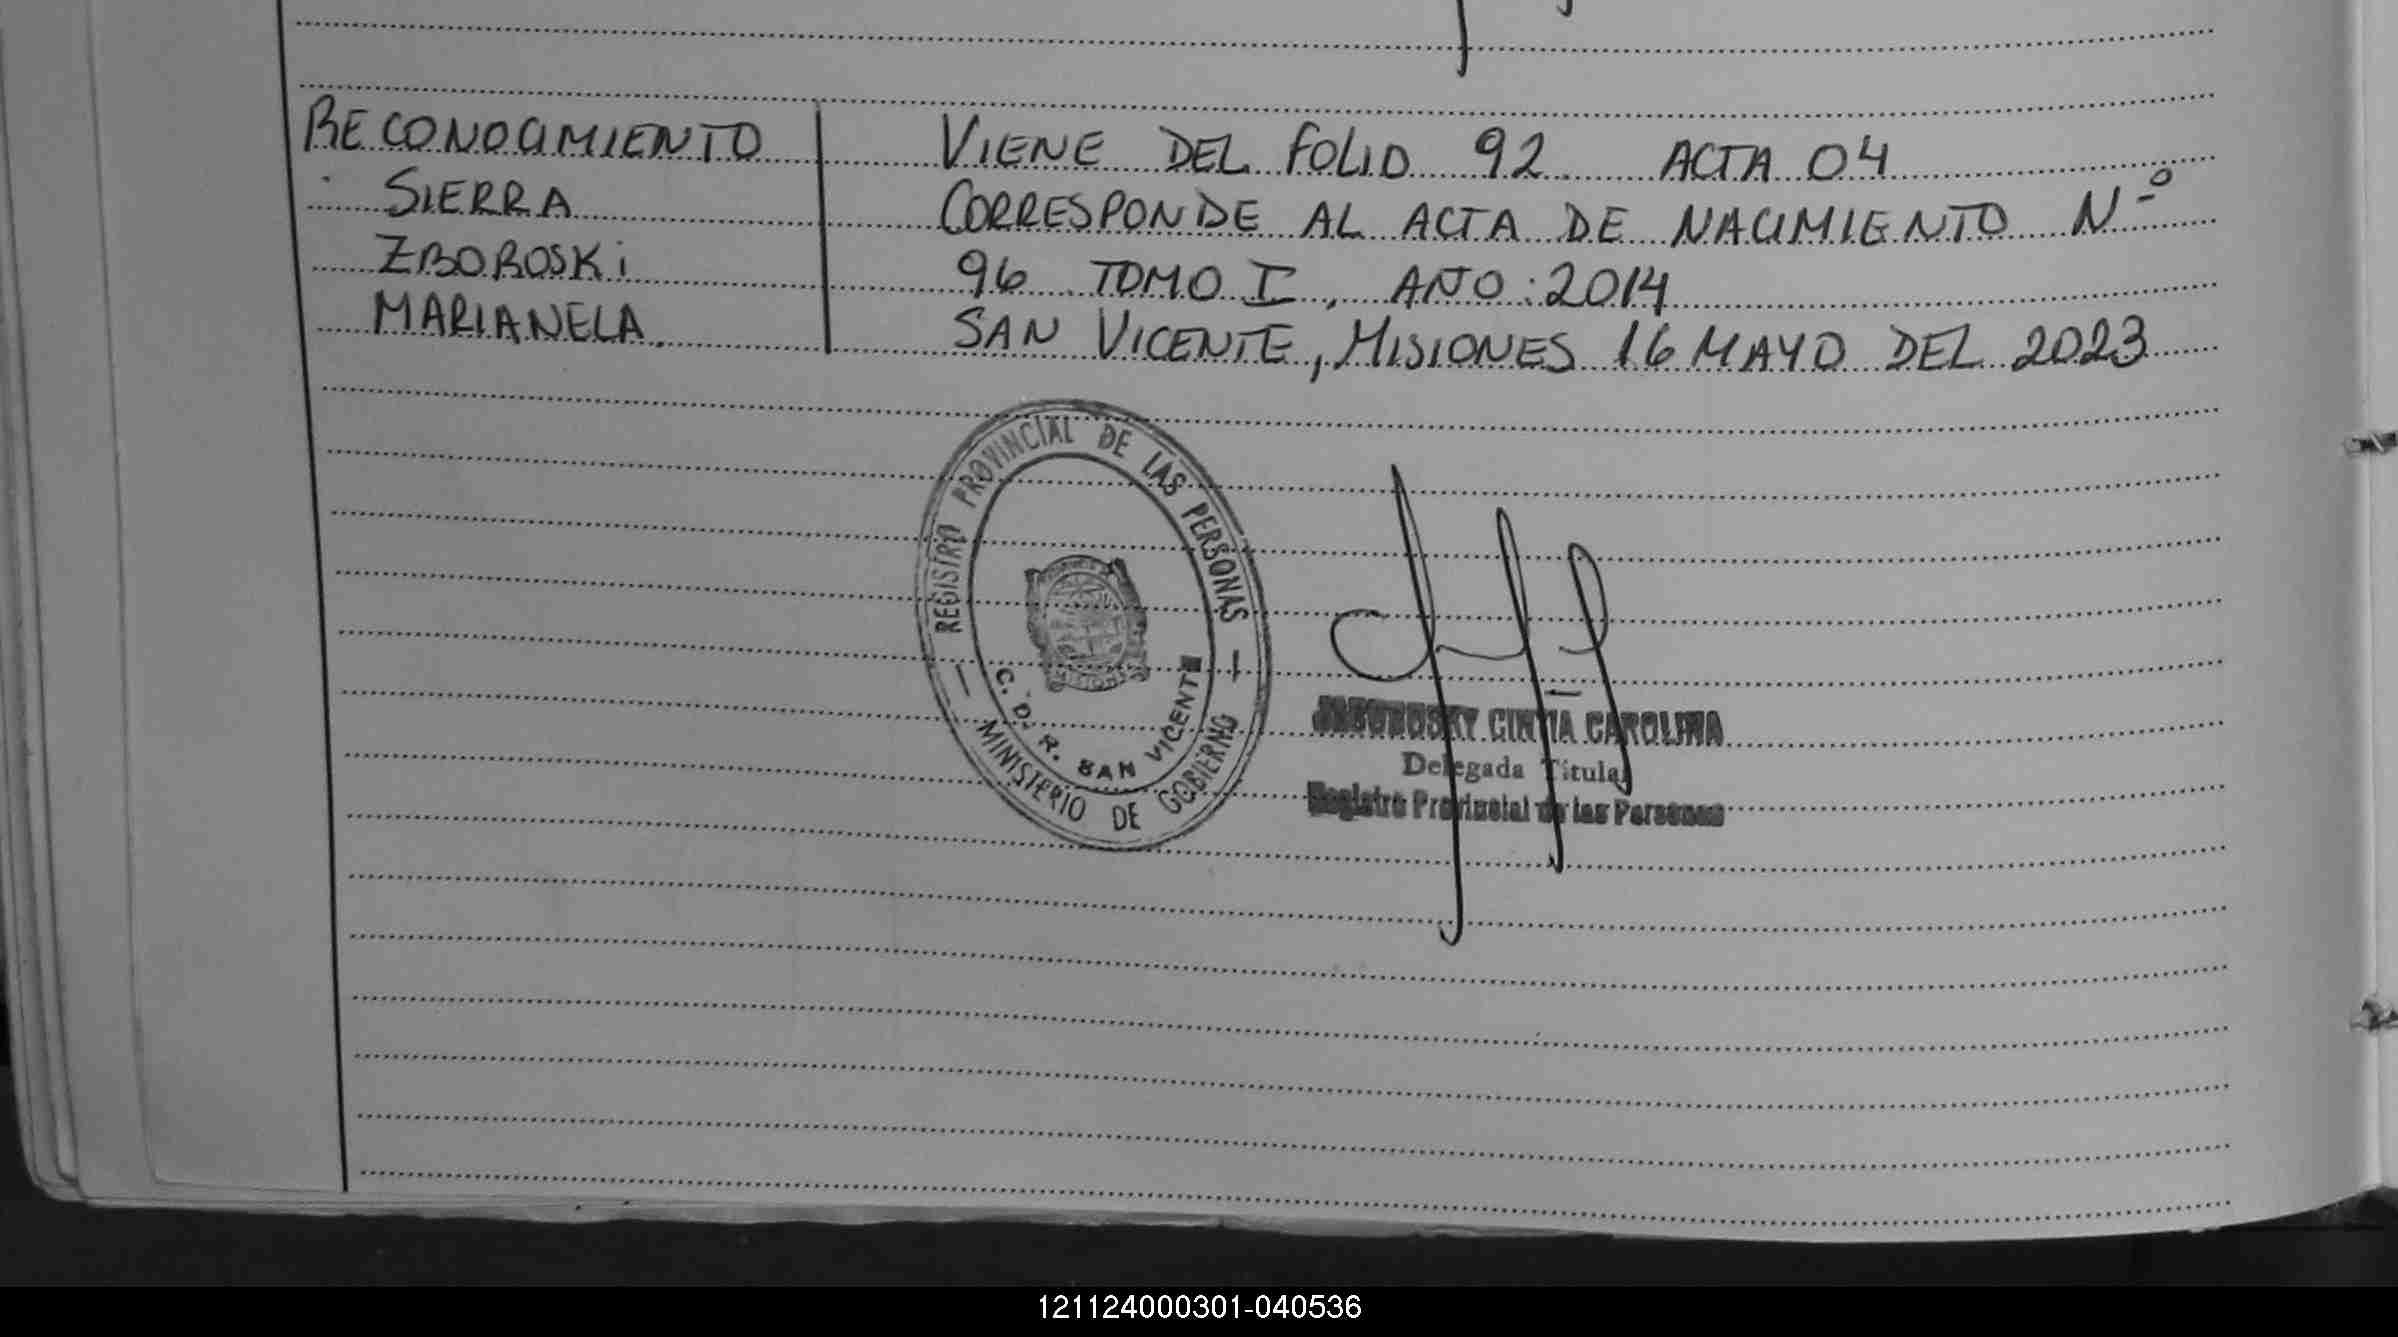 RECONOCIMIENTO
SIERRA
ZBOROSKi
MARIANELA.
VIENE DEL FOLIO 92. ACTA 04
CORRESPONDE AL ACTA DE NACIMIENTO N.º
96 TOMO I, AÑO: 2014
SAN VICENTE, MISIONES 16 MAYO DEL 2023
REGISTRO PROVINCIAL DE LAS PERSONAS
C. D. R. SAN VICENTE
MINISTERIO DE GOBIERNO
CINTIA CAROLINA
Delegada Titular
Registro Provincial de las Personas
121124000301-040536